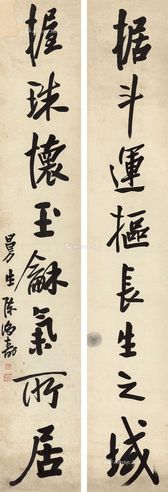 据斗運樞長生之域
握珠懷玉龢氣所居
曼生陳鴻壽